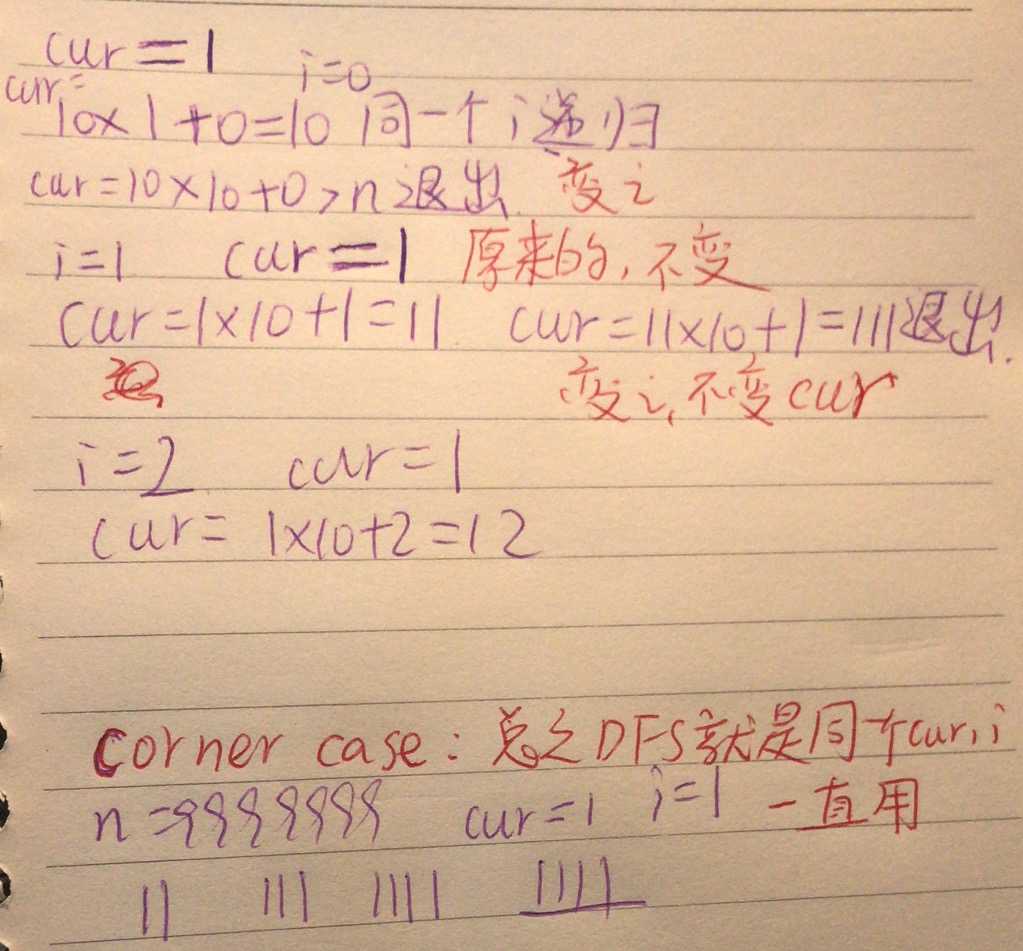 cur=1 i=0
cur=
10×1+0=10 同一个i递归
cur=10×10+0>n退出. 变i
i=1 cur=1 原来的,不变
cur=1×10+1=11 cur=11×10+1=111退出.
变i,不变cur
i=2 cur=1
cur=1×10+2=12
corner case:总之DFS就是同一个cur,i
n=9999999 cur=1 i=1 一直用
11 111 1111 1111